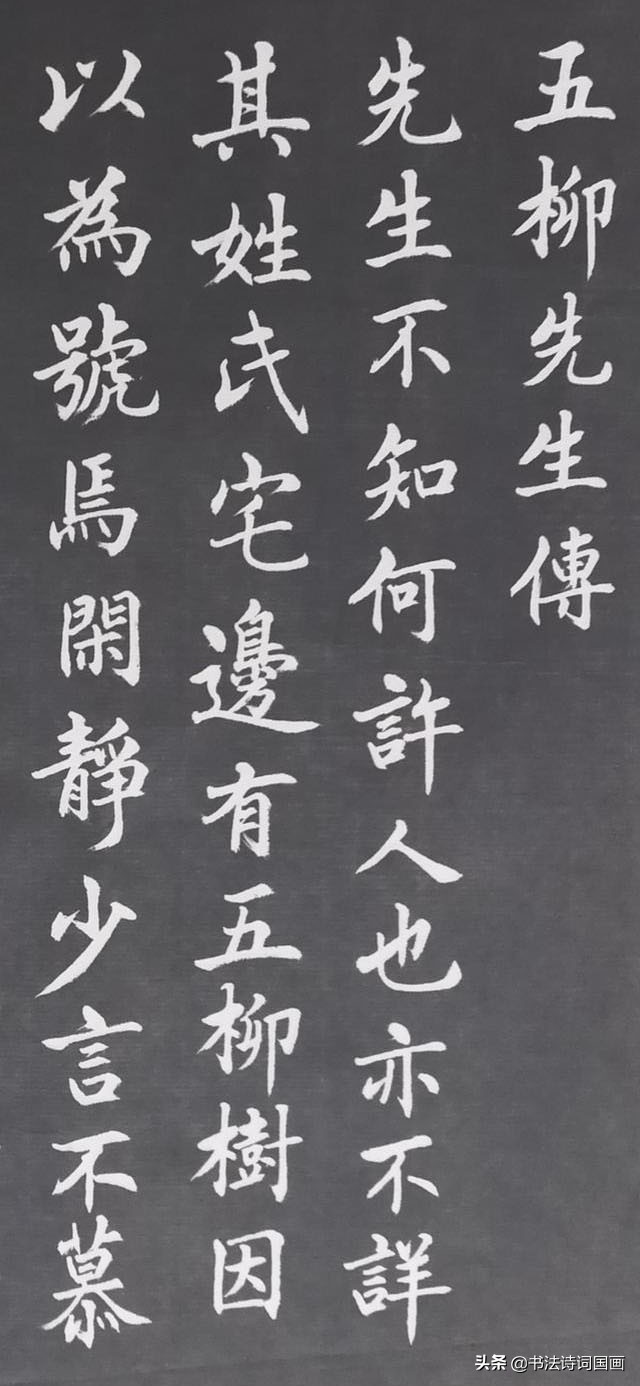 五柳先生傳
先生不知何許人也亦不詳
其姓氏宅邊有五柳樹因
以為號焉閑靜少言不慕
头条 @书法诗词国画